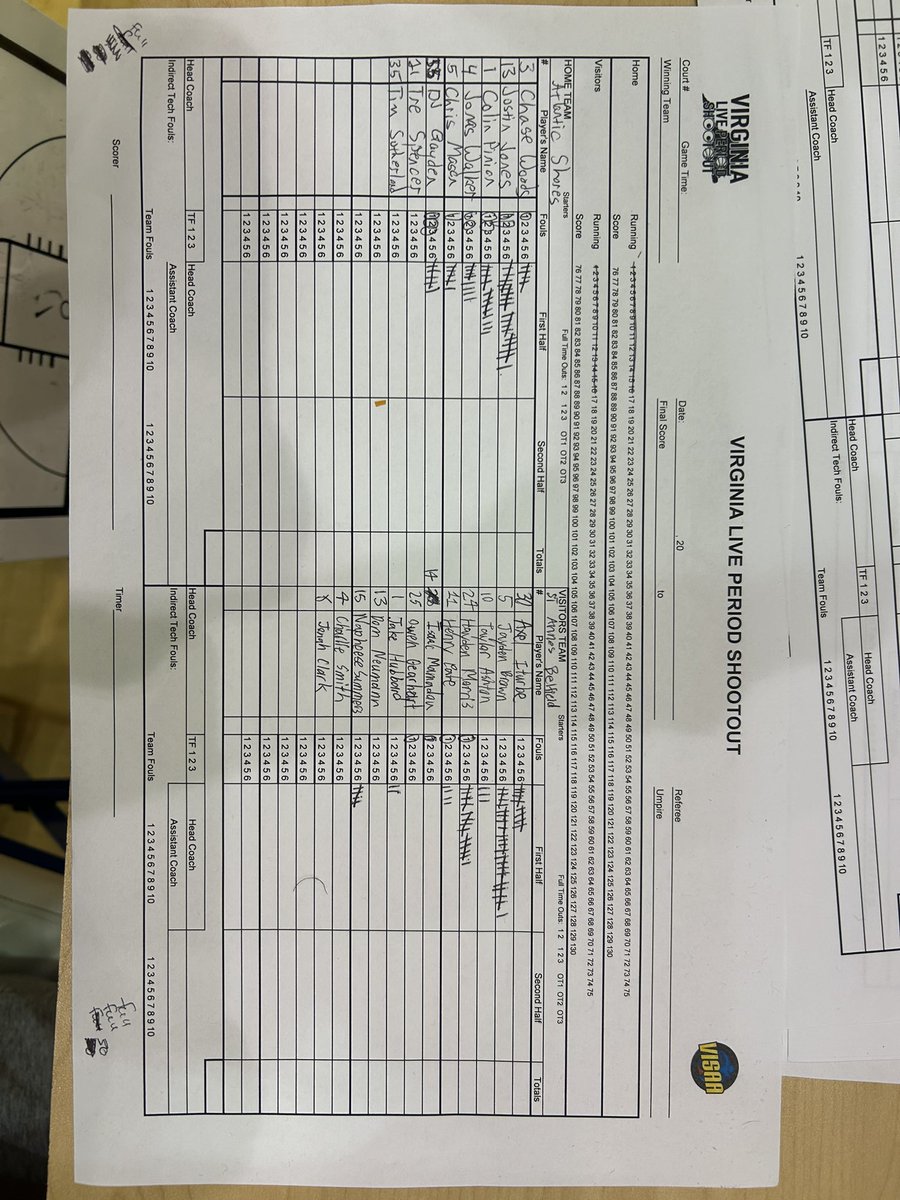 VIRGINIA LIVE PERIOD SHOOTOUT
VIRGINIA
LIVE PERIOD
SHOOTOUT
VISAA
Court # Game Time: Date: , 20 Referee
Winning Team Final Score to Umpire
Home Running 1 2 3 4 5 6 7 8 9 10 11 12 13 14 15 16 17 18 19 20 21 22 23 24 25 26 27 28 29 30 31 32 33 34 35 36 37 38 39 40 41 42 43 44 45 46 47 48 49 50 51 52 53 54 55 56 57 58 59 60 61 62 63 64 65 66 67 68 69 70 71 72 73 74 75
Score 76 77 78 79 80 81 82 83 84 85 86 87 88 89 90 91 92 93 94 95 96 97 98 99 100 101 102 103 104 105 106 107 108 109 110 111 112 113 114 115 116 117 118 119 120 121 122 123 124 125 126 127 128 129 130
Visitors Running 1 2 3 4 5 6 7 8 9 10 11 12 13 14 15 16 17 18 19 20 21 22 23 24 25 26 27 28 29 30 31 32 33 34 35 36 37 38 39 40 41 42 43 44 45 46 47 48 49 50 51 52 53 54 55 56 57 58 59 60 61 62 63 64 65 66 67 68 69 70 71 72 73 74 75
Score 76 77 78 79 80 81 82 83 84 85 86 87 88 89 90 91 92 93 94 95 96 97 98 99 100 101 102 103 104 105 106 107 108 109 110 111 112 113 114 115 116 117 118 119 120 121 122 123 124 125 126 127 128 129 130
HOME TEAM Starters Full Time Outs: 1 2 1 2 3 OT1 OT2 OT3
Atlantic Shores
# Player's Name Fouls First Half Second Half Totals
3 Chase Woods 1 2 3 4 5 6
13 Justin Jones 1 2 3 4 5 6
1 Colin Pinion 1 2 3 4 5 6
4 Jones Walker 1 2 3 4 5 6
5 Chris Mason 1 2 3 4 5 6
DJ Gayden 1 2 3 4 5 6
21 Tre Spencer 1 2 3 4 5 6
35 Tim Sutherland 1 2 3 4 5 6
1 2 3 4 5 6
1 2 3 4 5 6
1 2 3 4 5 6
1 2 3 4 5 6
1 2 3 4 5 6
1 2 3 4 5 6
1 2 3 4 5 6
Head Coach TF 1 2 3 Head Coach
Indirect Tech Fouls: Assistant Coach
Team Fouls 1 2 3 4 5 6 7 8 9 10 1 2 3 4 5 6 7 8 9 10
VISITORS TEAM Starters Full Time Outs: 1 2 1 2 3 OT1 OT2 OT3
St Annes Belfield
# Player's Name Fouls First Half Second Half Totals
Axel Iturbe 1 2 3 4 5 6
5 Jayden Brown 1 2 3 4 5 6
10 Taylor Ashton 1 2 3 4 5 6
24 Hayden Morris 1 2 3 4 5 6
Henry Pate 1 2 3 4 5 6
14 Isaac 1 2 3 4 5 6
25 Owen Gearhart 1 2 3 4 5 6
1 Jake Hubbard 1 2 3 4 5 6
13 Dom Neumann 1 2 3 4 5 6
15 Napheese Summers 1 2 3 4 5 6
4 Smith 1 2 3 4 5 6
Jonah Clark 1 2 3 4 5 6
1 2 3 4 5 6
1 2 3 4 5 6
1 2 3 4 5 6
1 2 3 4 5 6
Head Coach TF 1 2 3 Head Coach
Indirect Tech Fouls: Assistant Coach
Team Fouls 1 2 3 4 5 6 7 8 9 10 1 2 3 4 5 6 7 8 9 10
Scorer Timer
full
full
full
50
1 2 3 4 5 6
TF 1 2 3 Head Coach
Assistant Coach
1 2 3 4 5 6 7 8 9 10
Head Coach TF 1 2 3 Head Coach
Indirect Tech Fouls: Assistant Coach
Team Fouls 1 2 3 4 5 6 7 8 9 10 1 2 3 4 5 6 7 8 9 10